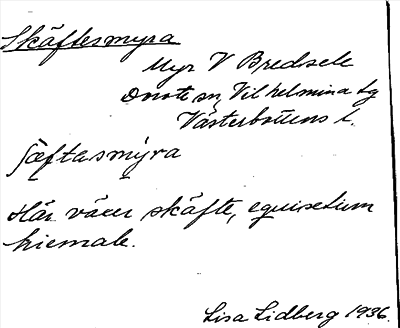 Skäftesmyra
Myr V Bredsele
Dorotea sn, Vilhelmina tg
Västerbottens l.
ſæftasmýra
Här växer skäfte, equisetium
hiemale.
Lisa Lidberg 1936.